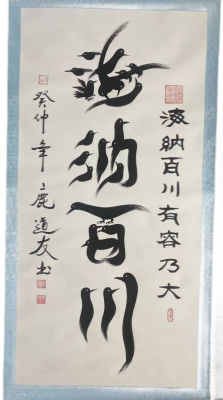 海纳百川
海纳百川有容乃大
癸仲年鹿道友书